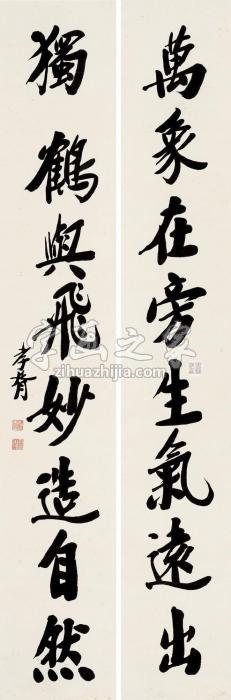 萬象在旁生氣遠出
獨鶴與飛妙造自然
孝胥
字画之家
zihuazhijia.com